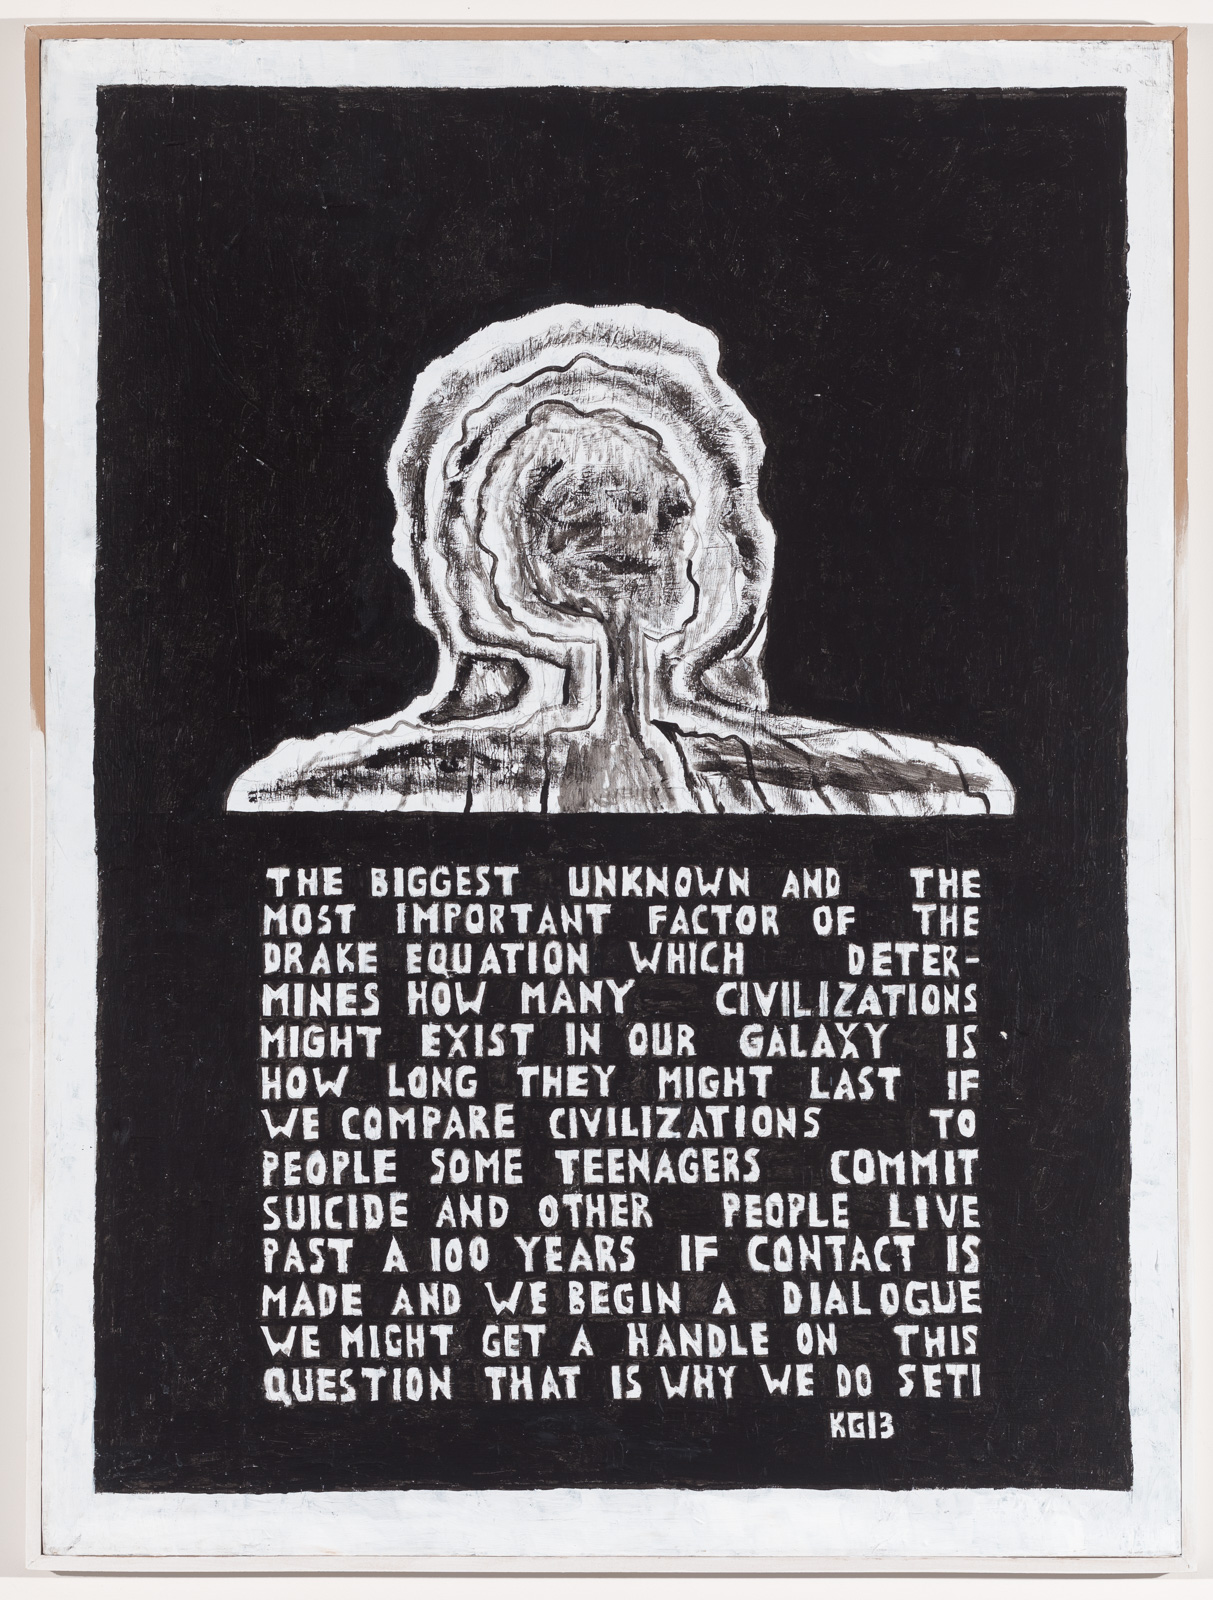 THE BIGGEST UNKNOWN AND THE
MOST IMPORTANT FACTOR OF THE
DRAKE EQUATION WHICH DETER-
MINES HOW MANY CIVILIZATIONS
MIGHT EXIST IN OUR GALAXY IS
HOW LONG THEY MIGHT LAST IF
WE COMPARE CIVILIZATIONS TO
PEOPLE SOME TEENAGERS COMMIT
SUICIDE AND OTHER PEOPLE LIVE
PAST A 100 YEARS IF CONTACT IS
MADE AND WE BEGIN A DIALOGUE
WE MIGHT GET A HANDLE ON THIS
QUESTION THAT IS WHY WE DO SETI
KG13